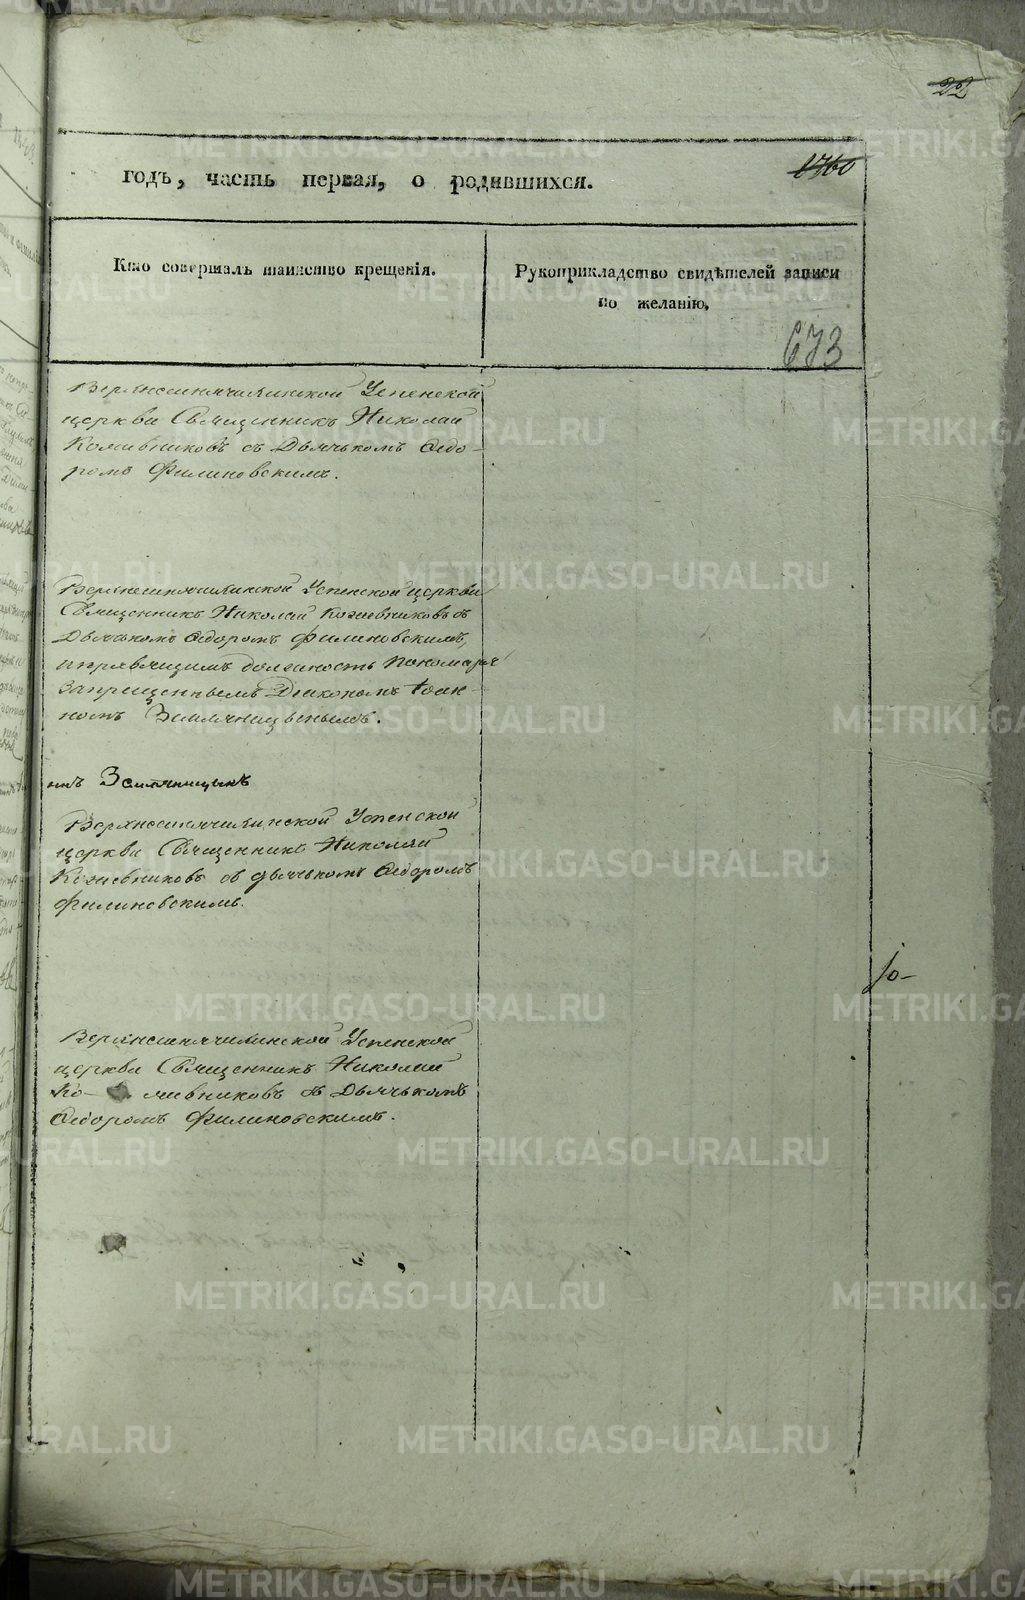 22
1760
годъ, часть первая, о родившихся.
Кто совершалъ таинство крещенія.
Рукоприкладство свидѣтелей записи
по желанію.
673
Верхнесинячихинской Успенской
церкви Священникъ Николай
Кожевниковъ съ Дьячькомъ Ѳедо-
ромъ Филиновскимъ.
Верхнесинячихинской Успенской церкви
Священникъ Николай Кожевниковъ съ
Дьячькомъ Ѳедоромъ Филиновскимъ,
и правящимъ должность пономаря
Запрещеннымъ Діакономъ Іоан-
номъ
Верхнесинячихинской Успенской
церкви Священникъ Николай
Кожевниковъ съ дьячькомъ Ѳедоромъ
Филиновскимъ.
Верхнесинячихинской Успенской
церкви Священникъ Николай
Ко- жевниковъ съ Дьячькомъ
Ѳедоромъ Филиновскимъ.
METRIKI.GASO-URAL.RU